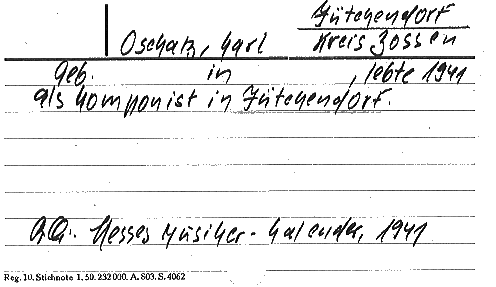 Jütchendorf
Oschatz, Karl Kreis Zossen
Geb. in , lebte 1941
als Komponist in Jütchendorf.
Hesses Musiker-Kalender, 1941
Reg. 10. Stichnote 1. 50. 232000. A. 803. S. 4062